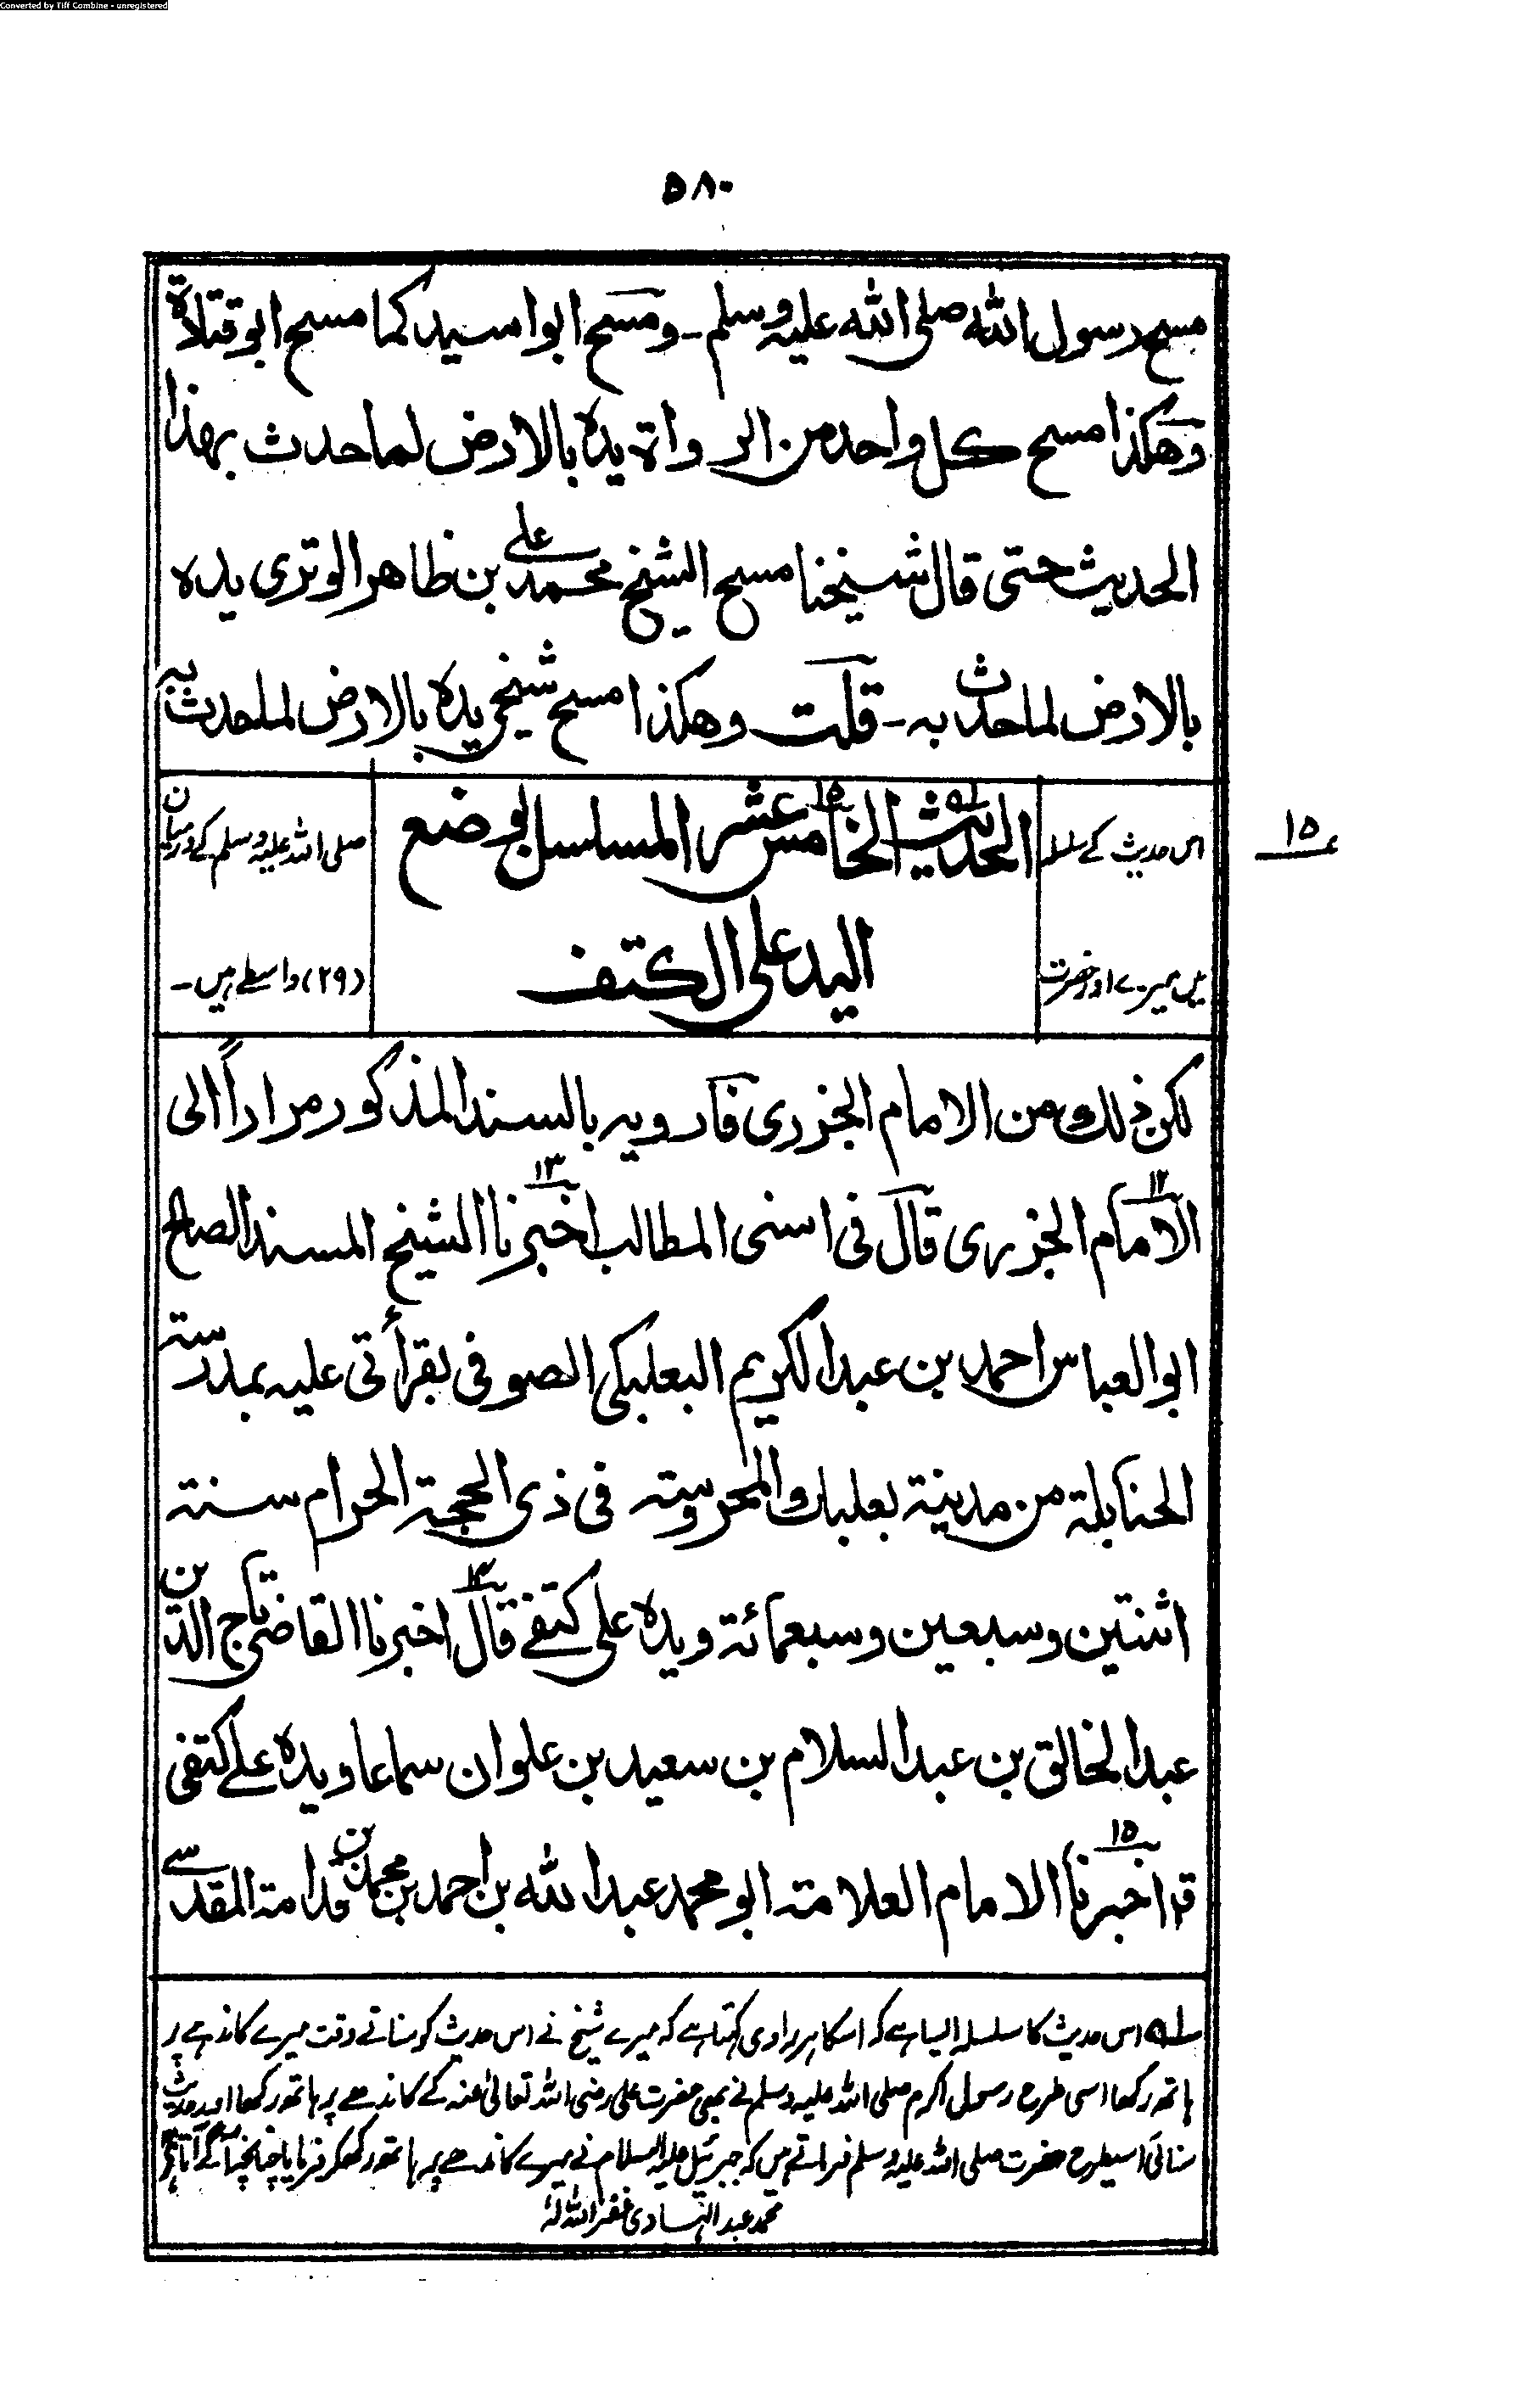 Converted by Tiff Combine - unregistered
۵۸۰
مسح رسول الله صلى الله عليه وسلم۔ ومسح ابو اسيد كما مسح ابو قتادة
وهكذا مسح كل واحد من الرواة يده بالارض لما حدث بهذا
الحديث حتى قال شيخنا مسح الشيخ محمد علي بن ظاهر الوترى يده
بالارض لما حدث به۔ قلت وهكذا مسح شيخى يده بالارض لما حدث به
۱۵
اس حدیث کے سلسلہ
میں میرے اور حضرت
الحديث الخامس عشر المسلسل بوضع
اليد على الكتف
صلی اللہ علیہ وسلم کے درمیان
(۲۹) واسطے ہیں۔
لكن ذلك من الامام الجزرى فارويه بالسند المذكور مراراً الى
الامام الجزرى قال فى اسنى المطالب اخبرنا ۱۳ الشيخ المسند الصالح
ابو العباس احمد بن عبد الكريم البعلبكى الصوفى بقرأتى عليه بمدرسة
الحنابلة من مدينة بعلبك المحروسة فى ذى الحجة الحرام سنة
اثنتين وسبعين وسبعمائة ويده على كتفے قال ۱۴ اخبرنا القاضى تاج الدين
عبد الخالق بن عبد السلام بن سعيد بن علوان سماعا ويده علے كتفى
اخبرنا ۱۵ الامام العلامة ابو محمد عبد الله بن احمد بن محمد بن قدامة المقدسے
اس حدیث کا سلسلہ ایسا ہے کہ اسکا ہر راوی کہتا ہے کہ میرے شیخ نے اس حدیث کو سناتے وقت میرے کاندھے پر
ہاتھ رکھا اسی طرح رسول اکرم صلی اللہ علیہ وسلم نے بھی حضرت علی رضی اللہ تعالیٰ عنہ کے کاندھے پر ہاتھ رکھا اور حدیث
سنائی اسیطرح حضرت صلی اللہ علیہ وسلم فرماتے ہیں کہ جبرئیل علیہ السلام نے میرے کاندھے پر ہاتھ رکھکر فرمایا چنانچہ آگے آتا ہے
محمد عبد الہادی غفر اللہ لہٗ